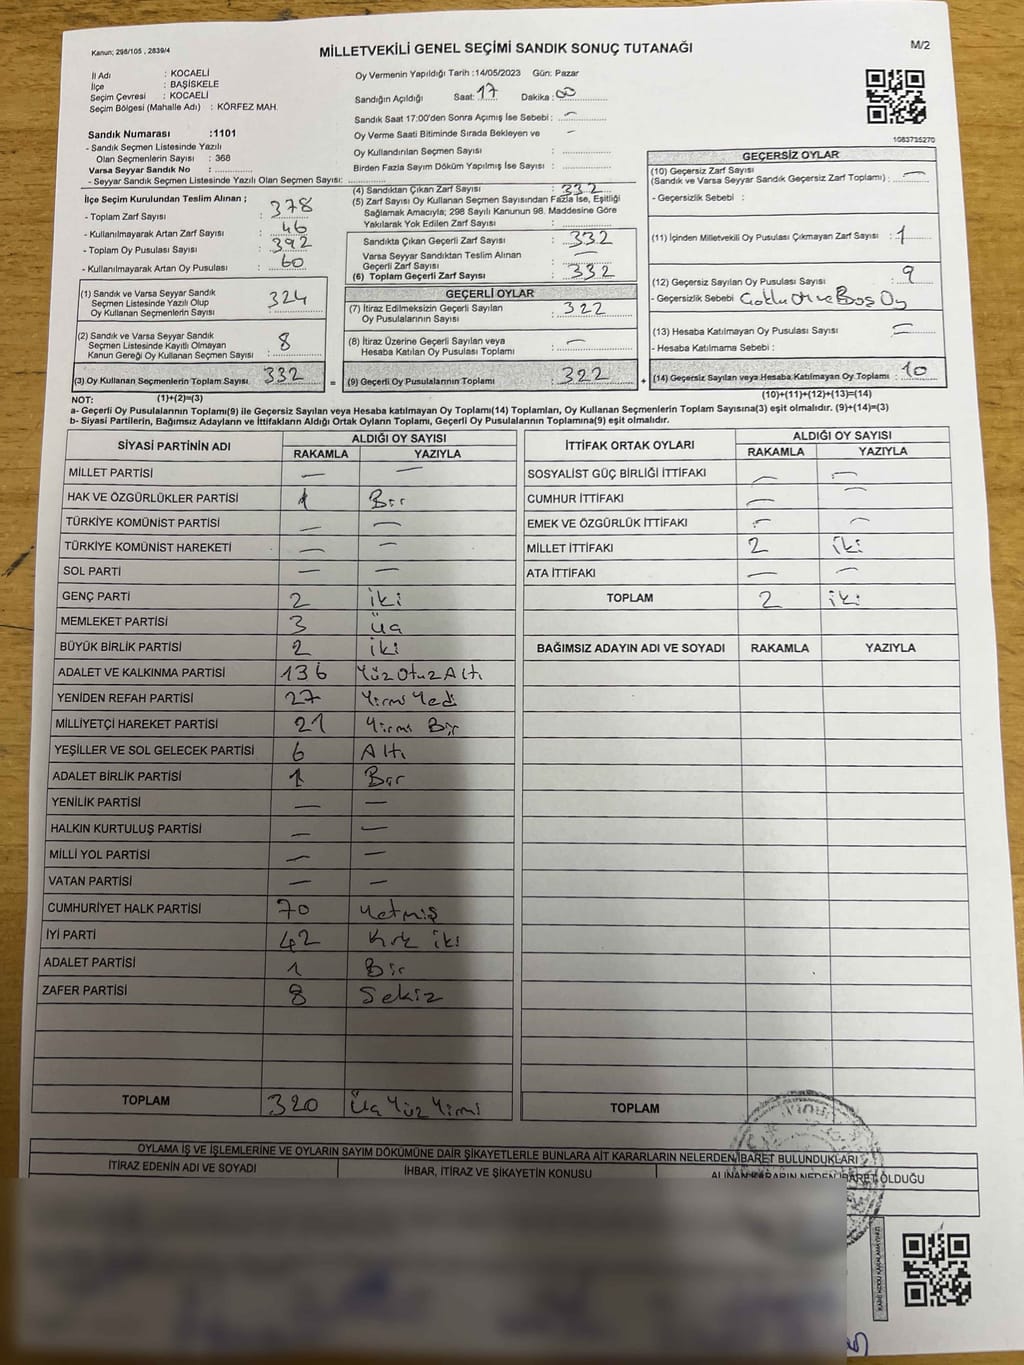 Kanun; 298/105 , 2839/4
MİLLETVEKİLİ GENEL SEÇİMİ SANDIK SONUÇ TUTANAĞI
M/2
İl Adı : KOCAELİ
İlçe : BAŞİSKELE
Seçim Çevresi : KOCAELİ
Seçim Bölgesi (Mahalle Adı) : KÖRFEZ MAH.
Sandık Numarası :1101
- Sandık Seçmen Listesinde Yazılı
Olan Seçmenlerin Sayısı : 368
Varsa Seyyar Sandık No :
- Seyyar Sandık Seçmen Listesinde Yazılı Olan Seçmen Sayısı:
Oy Vermenin Yapıldığı Tarih :14/05/2023 Gün: Pazar
Sandığın Açıldığı Saat: 17 Dakika : 00
Sandık Saat 17:00'den Sonra Açımış İse Sebebi : —
Oy Verme Saati Bitiminde Sırada Bekleyen ve —
Oy Kullandırılan Seçmen Sayısı :
Birden Fazla Sayım Döküm Yapılmış İse Sayısı :
1083735270
İlçe Seçim Kurulundan Teslim Alınan ;
- Toplam Zarf Sayısı : 378
- Kullanılmayarak Artan Zarf Sayısı : 46
- Toplam Oy Pusulası Sayısı : 392
- Kullanılmayarak Artan Oy Pusulası : 60
(1) Sandık ve Varsa Seyyar Sandık
Seçmen Listesinde Yazılı Olup
Oy Kullanan Seçmenlerin Sayısı : 324
(2) Sandık ve Varsa Seyyar Sandık
Seçmen Listesinde Kayıtlı Olmayan
Kanun Gereği Oy Kullanan Seçmen Sayısı : 8
(3) Oy Kullanan Seçmenlerin Toplam Sayısı : 332
(4) Sandıktan Çıkan Zarf Sayısı : 332
(5) Zarf Sayısı Oy Kullanan Seçmen Sayısından Fazla İse, Eşitliği
Sağlamak Amacıyla; 298 Sayılı Kanunun 98. Maddesine Göre
Yakılarak Yok Edilen Zarf Sayısı :
Sandıkta Çıkan Geçerli Zarf Sayısı : 332
Varsa Seyyar Sandıktan Teslim Alınan
Geçerli Zarf Sayısı : —
(6) Toplam Geçerli Zarf Sayısı : 332
GEÇERLİ OYLAR
(7) İtiraz Edilmeksizin Geçerli Sayılan
Oy Pusulalarının Sayısı : 322
(8) İtiraz Üzerine Geçerli Sayılan veya
Hesaba Katılan Oy Pusulası Toplamı : —
= (9) Geçerli Oy Pusulalarının Toplamı : 322
GEÇERSİZ OYLAR
(10) Geçersiz Zarf Sayısı
(Sandık ve Varsa Seyyar Sandık Geçersiz Zarf Toplamı) : —
- Geçersizlik Sebebi :
(11) İçinden Milletvekili Oy Pusulası Çıkmayan Zarf Sayısı : 1
(12) Geçersiz Sayılan Oy Pusulası Sayısı : 9
- Geçersizlik Sebebi : Çoklu Oy ve Boş Oy
(13) Hesaba Katılmayan Oy Pusulası Sayısı : —
- Hesaba Katılmama Sebebi :
+ (14) Geçersiz Sayılan veya Hesaba Katılmayan Oy Toplamı : 10
NOT: (1)+(2)=(3)
(10)+(11)+(12)+(13)=(14)
a- Geçerli Oy Pusulalarının Toplamı(9) ile Geçersiz Sayılan veya Hesaba katılmayan Oy Toplamı(14) Toplamları, Oy Kullanan Seçmenlerin Toplam Sayısına(3) eşit olmalıdır. (9)+(14)=(3)
b- Siyasi Partilerin, Bağımsız Adayların ve İttifakların Aldığı Ortak Oyların Toplamı, Geçerli Oy Pusulalarının Toplamına(9) eşit olmalıdır.
SİYASİ PARTİNİN ADI ALDIĞI OY SAYISI
RAKAMLA YAZIYLA
MİLLET PARTİSİ — —
HAK VE ÖZGÜRLÜKLER PARTİSİ 1 Bir
TÜRKİYE KOMÜNİST PARTİSİ — —
TÜRKİYE KOMÜNİST HAREKETİ — —
SOL PARTİ — —
GENÇ PARTİ 2 iki
MEMLEKET PARTİSİ 3 Üç
BÜYÜK BİRLİK PARTİSİ 2 iki
ADALET VE KALKINMA PARTİSİ 136 Yüz Otuz Altı
YENİDEN REFAH PARTİSİ 27 Yirmi Yedi
MİLLİYETÇİ HAREKET PARTİSİ 21 Yirmi Bir
YEŞİLLER VE SOL GELECEK PARTİSİ 6 Altı
ADALET BİRLİK PARTİSİ 1 Bir
YENİLİK PARTİSİ — —
HALKIN KURTULUŞ PARTİSİ — —
MİLLİ YOL PARTİSİ — —
VATAN PARTİSİ — —
CUMHURİYET HALK PARTİSİ 70 Yetmiş
İYİ PARTİ 42 Kırk iki
ADALET PARTİSİ 1 Bir
ZAFER PARTİSİ 8 Sekiz
TOPLAM 320 Üç Yüz Yirmi
İTTİFAK ORTAK OYLARI ALDIĞI OY SAYISI
RAKAMLA YAZIYLA
SOSYALİST GÜÇ BİRLİĞİ İTTİFAKI — —
CUMHUR İTTİFAKI — —
EMEK VE ÖZGÜRLÜK İTTİFAKI — —
MİLLET İTTİFAKI 2 iki
ATA İTTİFAKI — —
TOPLAM 2 iki
BAĞIMSIZ ADAYIN ADI VE SOYADI RAKAMLA YAZIYLA
TOPLAM
OYLAMA İŞ VE İŞLEMLERİNE VE OYLARIN SAYIM DÖKÜMÜNE DAİR ŞİKAYETLERLE BUNLARA AİT KARARLARIN NELERDEN İBARET BULUNDUKLARI
İTİRAZ EDENİN ADI VE SOYADI İHBAR, İTİRAZ VE ŞİKAYETİN KONUSU ALINAN KARARIN NEDEN İBARET OLDUĞU